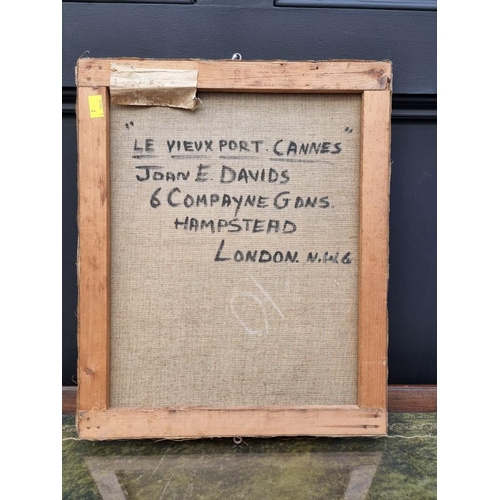 "LE VIEUX PORT. CANNES"
JOAN E. DAVIDS
6 COMPAYNE GDNS.
HAMPSTEAD
LONDON. N.W.6
10